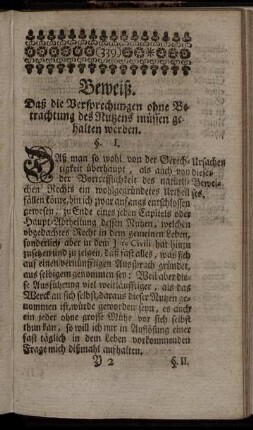 (339)
Beweiß.
Daß die Versprechungen ohne Be-
trachtung des Nutzens müssen ge-
halten werden.
§. I.
Daß man so wohl von der Gerech-
tigkeit überhaupt, als auch von
der Vortrefflichkeit des natürli-
chen Rechts ein wohlgegründetes Urtheil
fällen könne, bin ich zwar anfangs entschlossen
gewesen, zu Ende eines jeden Capitels oder
Haupt-Abtheilung dessen Nutzen, welchen
obgedachtes Recht in dem gemeinen Leben,
sonderlich aber in dem Jure Civili hat hinzu
zusehen und zu zeigen, daß fast alles, was sich
auf einen vernünfftigen Ausspruch gründet,
aus selbigem genommen sey: Weil aber die-
se Ausführung viel weitläufftiger, als das
Werck an sich selbst, daraus dieser Nutzen ge-
nommen ist, würde geworden seyn, es auch
ein jeder ohne grosse Mühe vor sich selbst
thun kan, so will ich nur in Aufflösung einer
fast täglich in dem Leben vorkommenden
Frage mich dißmahl aufhalten.
Ursachen
dieses
Bewei-
ses.
Y 2 §. II.